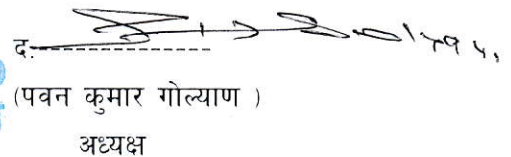 द.--------------------
(पवन कुमार गोल्याण )
अध्यक्ष